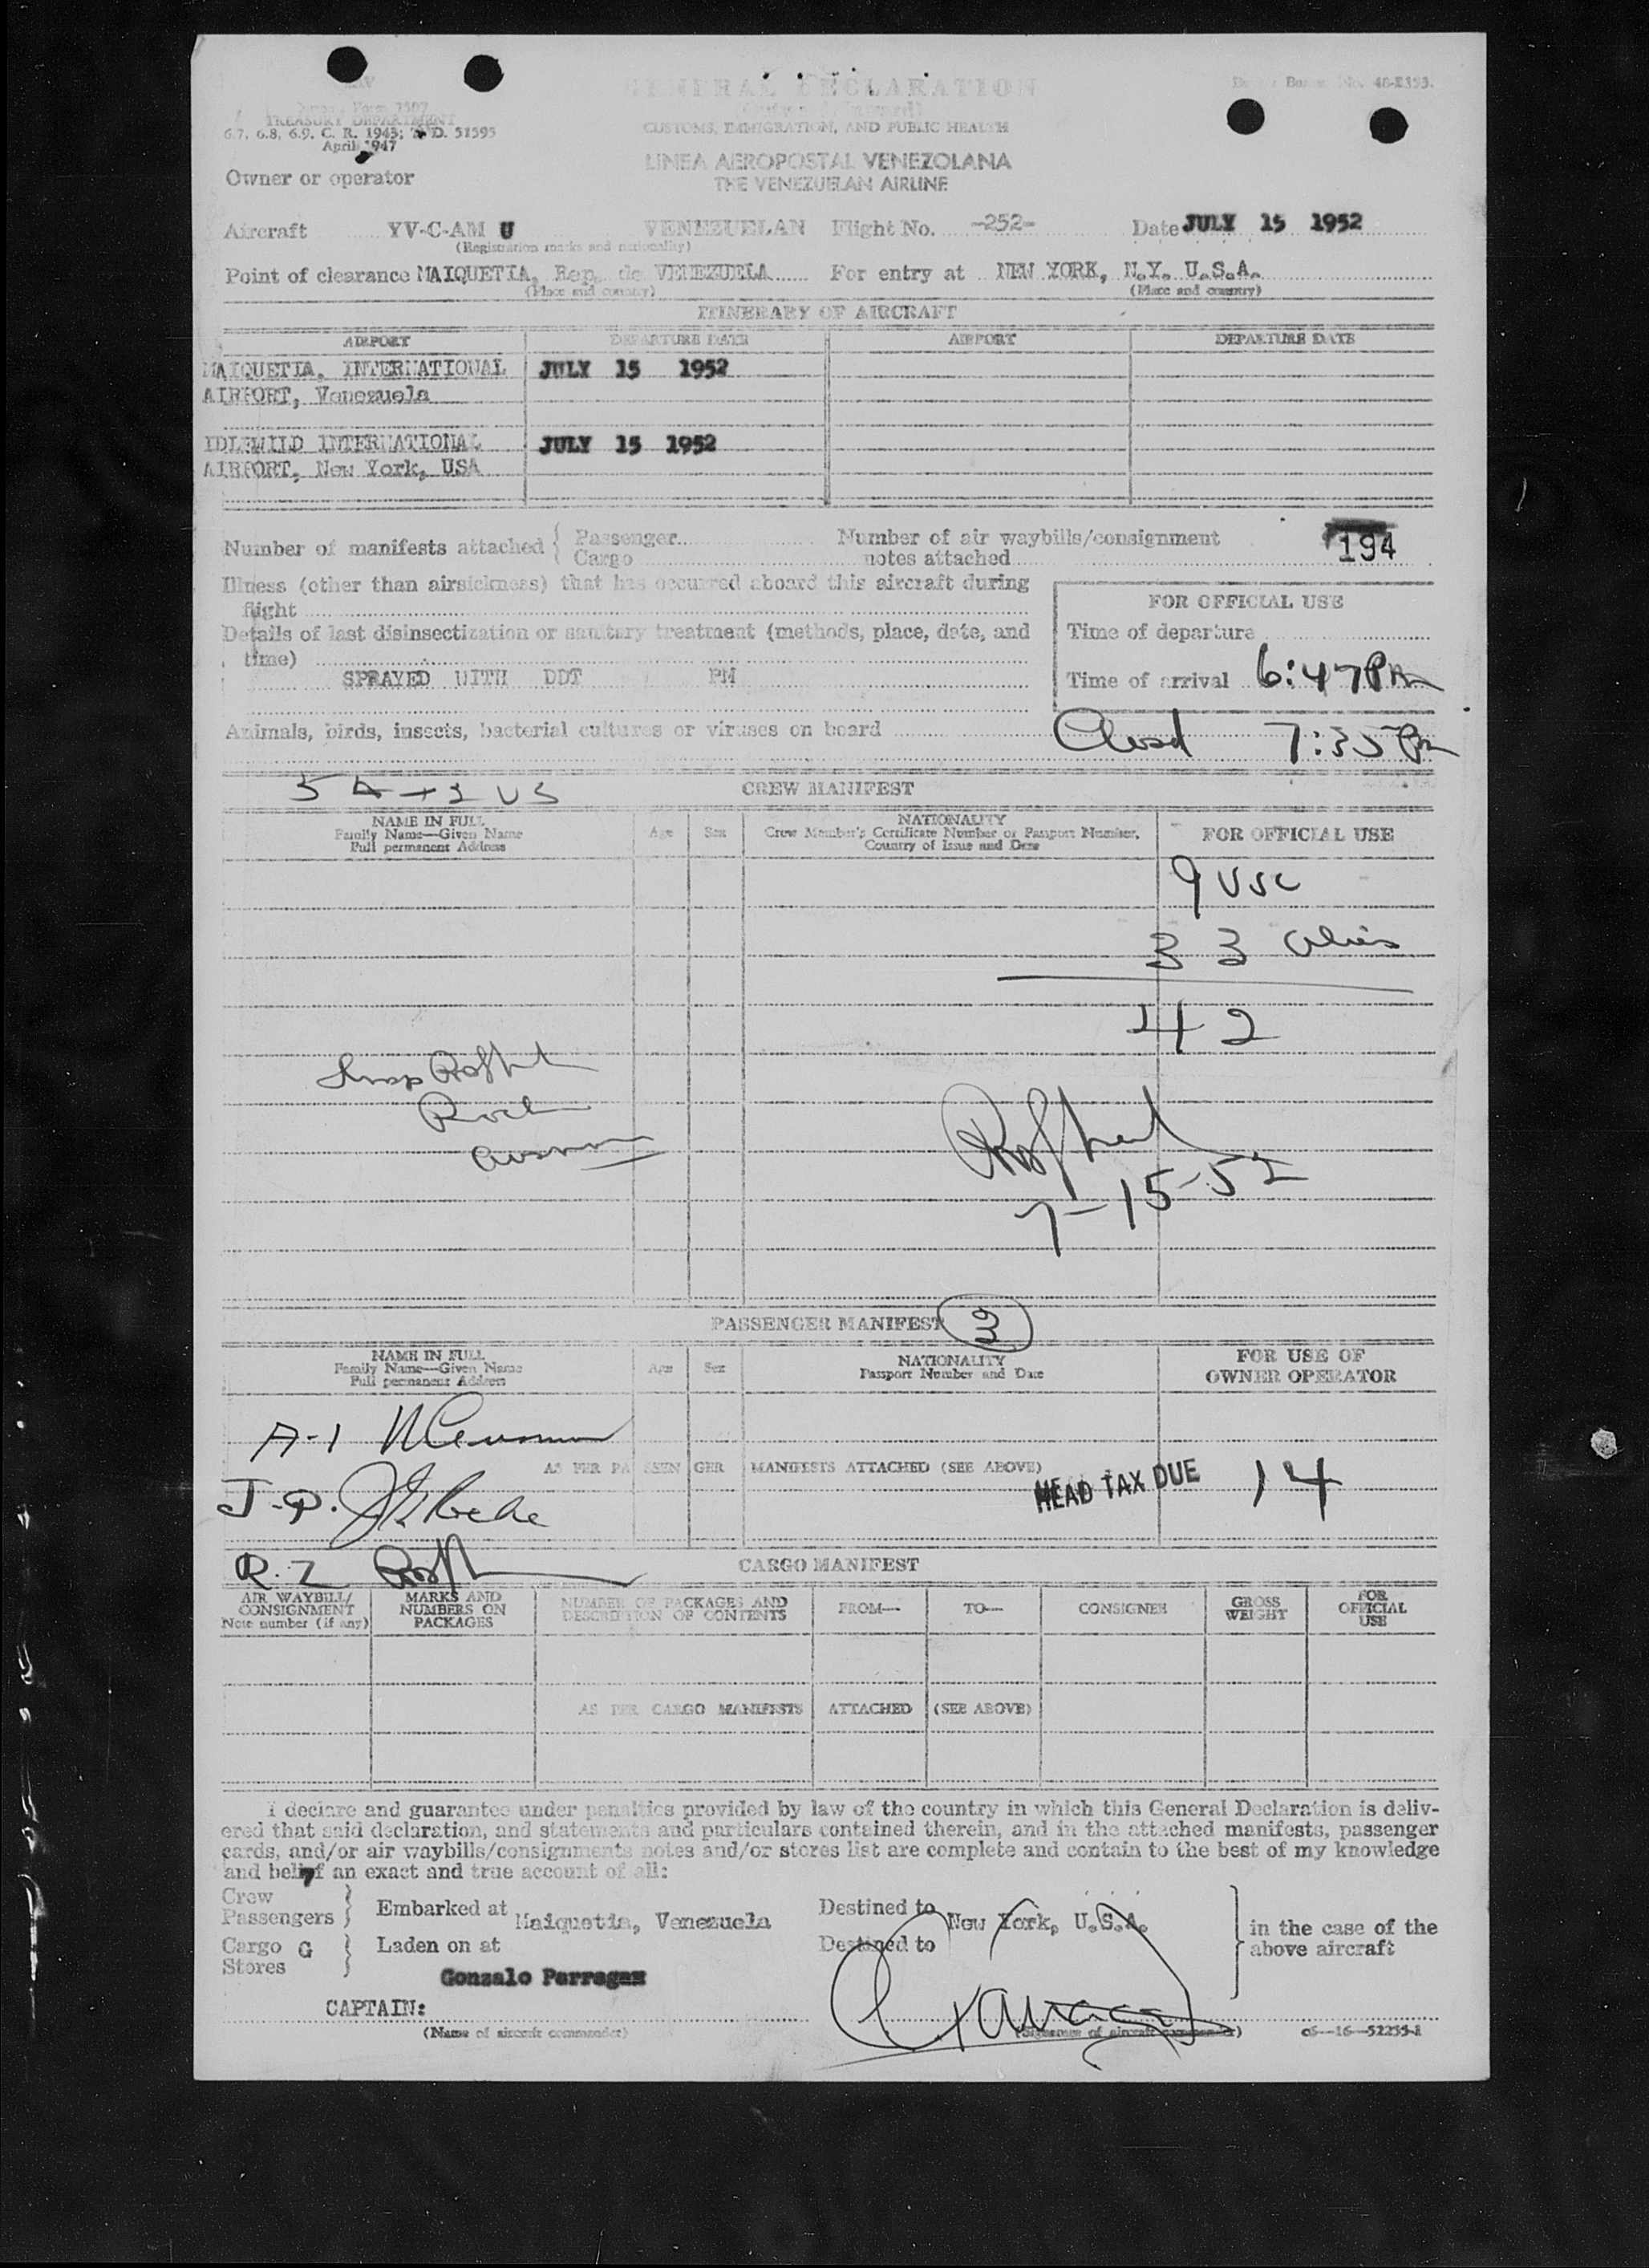 GENERAL DECLARATION
TREASURY DEPARTMENT
6.7, 6.8, 6.9, C. R. 1943; T. D. 51595
April 1947
CUSTOMS, IMMIGRATION, AND PUBLIC HEALTH
LINEA AEROPOSTAL VENEZOLANA
THE VENEZUELAN AIRLINE
Owner or operator
Aircraft YV-C-AM U VENEZUELAN Flight No. -252- Date JULY 15 1952
(Registration marks and nationality)
Point of clearance MAIQUETIA, Rep. de VENEZUELA For entry at NEW YORK, N.Y. U.S.A.
(Place and country) (Place and country)
ITINERARY OF AIRCRAFT
AIRPORT DEPARTURE DATE AIRPORT DEPARTURE DATE
MAIQUETIA, INTERNATIONAL JULY 15 1952
AIRPORT, Venezuela
IDLEWILD INTERNATIONAL JULY 15 1952
AIRPORT, New York, USA
Number of manifests attached { Passenger Number of air waybills/consignment
Cargo notes attached 194
Illness (other than airsickness) that has occurred aboard this aircraft during
flight
FOR OFFICIAL USE
Details of last disinsectization or sanitary treatment (methods, place, date, and
time)
Time of departure
SPRAYED WITH DDT PM
Time of arrival 6:47 PM
Animals, birds, insects, bacterial cultures or viruses on board
7:35 Pm
CREW MANIFEST
NAME IN FULL Age Sex NATIONALITY FOR OFFICIAL USE
Family Name—Given Name Crew Member's Certificate Number or Passport Number,
Full permanent Address Country of Issue and Date
9 USC
33 Aliens
42
7-15-52
PASSENGER MANIFEST
NAME IN FULL Age Sex NATIONALITY FOR USE OF
Family Name—Given Name Passport Number and Date OWNER OPERATOR
Full permanent Address
A-1
AS PER PASSENGER MANIFESTS ATTACHED (SEE ABOVE)
HEAD TAX DUE 14
J.P.
CARGO MANIFEST
AIR WAYBILL/ MARKS AND NUMBER OF PACKAGES AND FROM— TO— CONSIGNEE GROSS FOR
CONSIGNMENT NUMBERS ON DESCRIPTION OF CONTENTS WEIGHT OFFICIAL
Note number (if any) PACKAGES USE
AS PER CARGO MANIFESTS ATTACHED (SEE ABOVE)
I declare and guarantee under penalties provided by law of the country in which this General Declaration is deliv-
ered that said declaration, and statements and particulars contained therein, and in the attached manifests, passenger
cards, and/or air waybills/consignments notes and/or stores list are complete and contain to the best of my knowledge
and belief an exact and true account of all:
Crew
Passengers } Embarked at Maiquetia, Venezuela Destined to New York, U.S.A.
in the case of the
above aircraft
Cargo G
Stores } Laden on at Destined to
Gonzalo Parragas
CAPTAIN:
(Name of aircraft commander) (Signature of aircraft commander) c6—16—52255-1